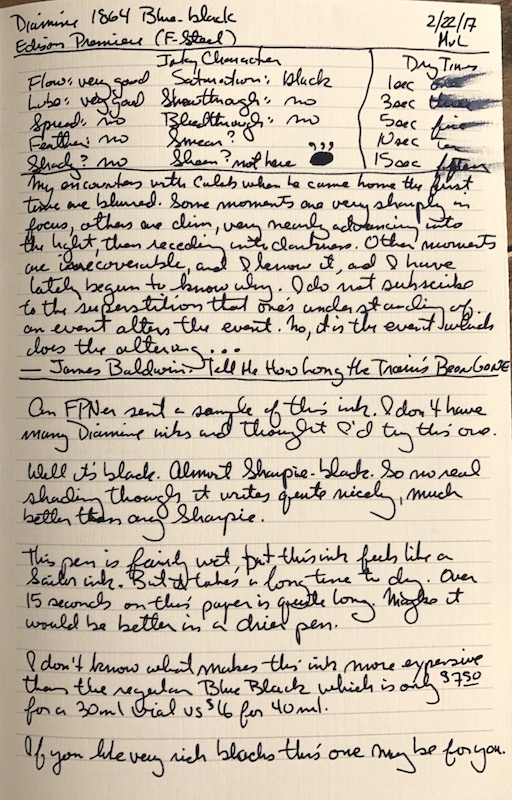 Diamine 1864 Blue-black
2/22/17
Edison Premiere (F-Steel)
MvL
Inky Character
Dry Times
Flow: very good Saturation: black
1 sec one
Lube: very good Showthrough: no
3 sec three
Spread: no Bleedthrough: no
5 sec five
Feather: no Smear?
10 sec ten
Shady? no Sheen? not here
15 sec fifteen
My encounters with Caleb when he came home the first
time are blurred. Some moments are very sharply in
focus, others are dim, very nearly advancing into
the light, then receding into darkness. Other moments
are irrecoverable, and I know it, and I have
lately begun to know why. I do not subscribe
to the superstition that one's understanding of
an event alters the event. No, it is the event which
does the altering...
— James Baldwin: Tell Me How Long the Train's Been Gone
An FPNer sent a sample of this ink. I don't have
many Diamine inks and thought I'd try this one.
Well it's black. Almost Sharpie-black. So no real
shading though it writes quite nicely, much
better than any Sharpie.
This pen is fairly wet, but this ink feels like a
Sailor ink. But it takes a long time to dry. Over
15 seconds on this paper is quite long. Maybe it
would be better in a drier pen.
I don't know what makes this ink more expensive
than the regular Blue Black which is only $7.50
for a 30ml vial vs $16 for 40ml.
If you like very rich blacks this one may be for you.